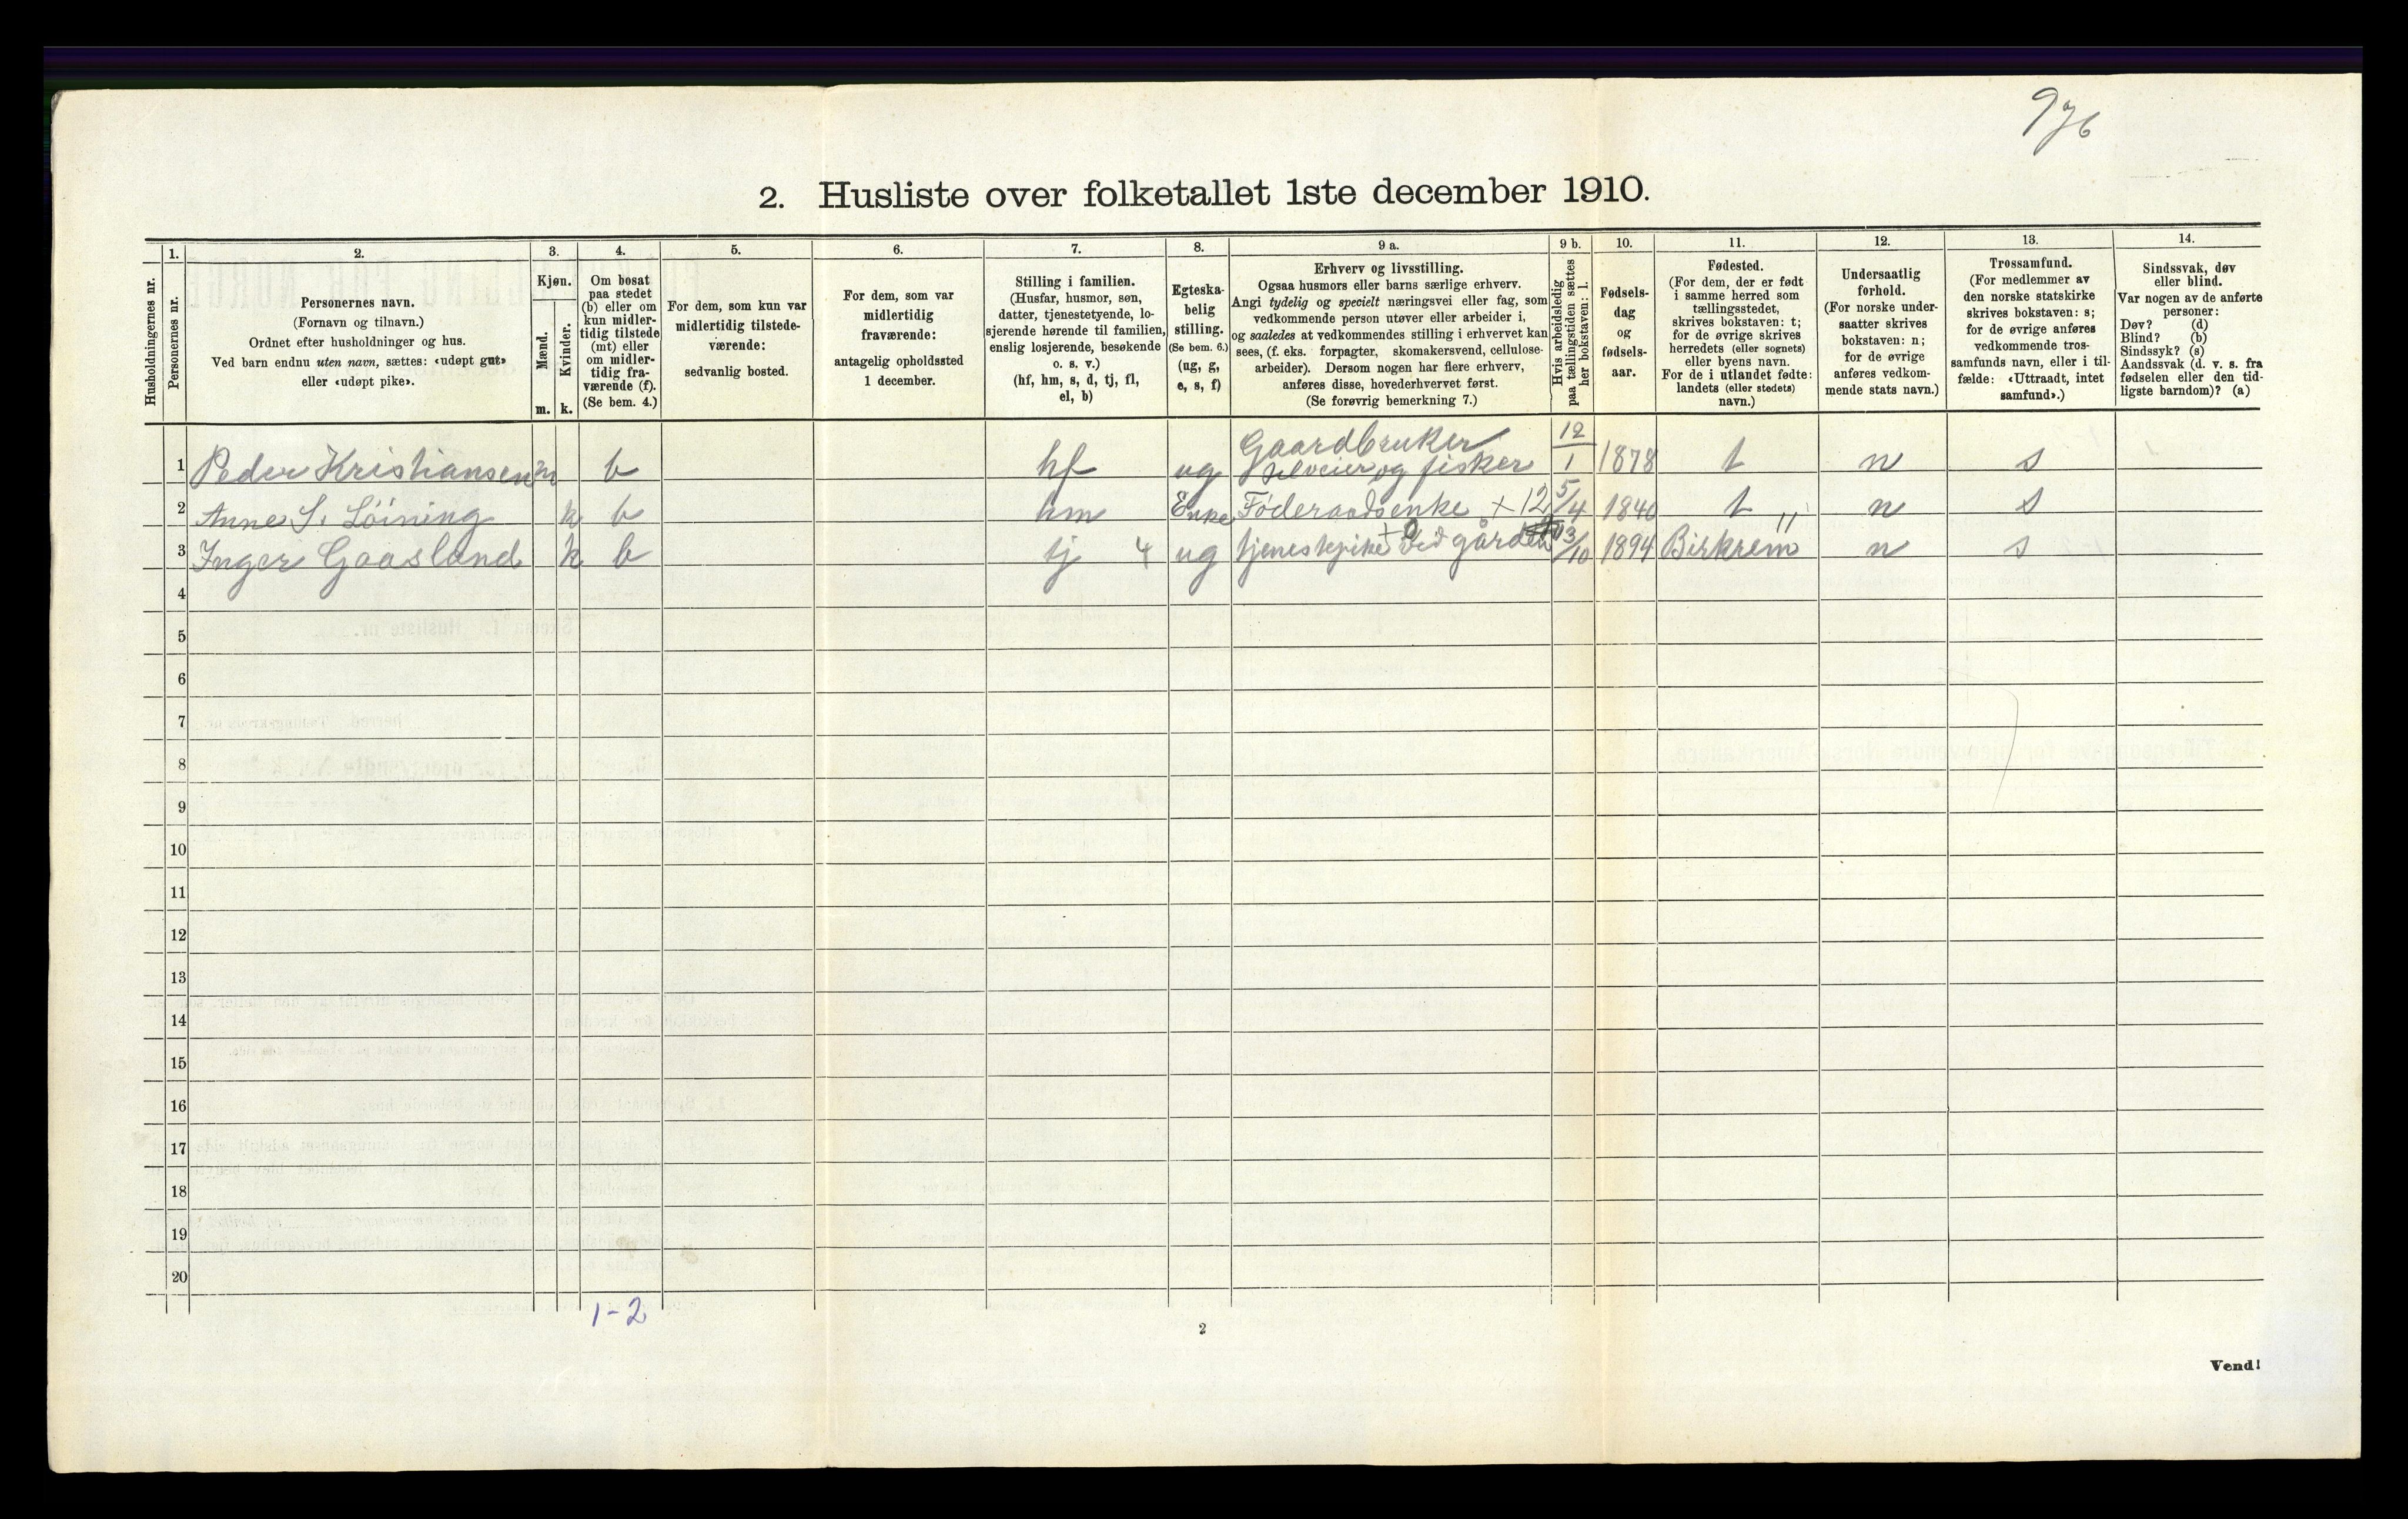 976
2. Husliste over folketallet 1ste december 1910.
Husholdningernes nr.
1.
Personernes nr.
2.
Personernes navn.
(Fornavn og tilnavn.)
Ordnet efter husholdninger og hus.
Ved barn endnu uten navn, sættes: «udøpt gut»
eller «udøpt pike».
3.
Kjøn.
Mænd.
Kvinder.
m. k.
4.
Om bosat
paa stedet
(b) eller om
kun midler-
tidig tilstede
(mt) eller
om midler-
tidig fra-
værende (f).
(Se bem. 4.)
5.
For dem, som kun var
midlertidig tilstede-
værende:
sedvanlig bosted.
6.
For dem, som var
midlertidig
fraværende:
antagelig opholdssted
1 december.
7.
Stilling i familien.
(Husfar, husmor, søn,
datter, tjenestetyende, lo-
sjerende hørende til familien,
enslig losjerende, besøkende
o. s. v.)
(hf, hm, s, d, tj, fl,
el, b)
8.
Egteska-
belig
stilling.
(Se bem. 6.)
(ug, g,
e, s, f)
9 a.
Erhverv og livsstilling.
Ogsaa husmors eller barns særlige erhverv.
Angi tydelig og specielt næringsvei eller fag, som
vedkommende person utøver eller arbeider i,
og saaledes at vedkommendes stilling i erhvervet kan
sees, (f. eks. forpagter, skomakersvend, cellulose-
arbeider). Dersom nogen har flere erhverv,
anføres disse, hovederhvervet først.
(Se forøvrig bemerkning 7.)
9 b.
Hvis arbeidsledig
paa tællingstiden sættes
her bokstaven: l.
10.
Fødsels-
dag
og
fødsels-
aar.
11.
Fødested.
(For dem, der er født
i samme herred som
tællingsstedet,
skrives bokstaven: t;
for de øvrige skrives
herredets (eller sognets)
eller byens navn.
For de i utlandet fødte:
landets (eller stedets)
navn.)
12.
Undersaatlig
forhold.
(For norske under-
saatter skrives
bokstaven: n;
for de øvrige
anføres vedkom-
mende stats navn.)
13.
Trossamfund.
(For medlemmer av
den norske statskirke
skrives bokstaven: s;
for de øvrige anføres
vedkommende tros-
samfunds navn, eller i til-
fælde: «Uttraadt, intet
samfund».)
14.
Sindssvak, døv
eller blind.
Var nogen av de anførte
personer:
Døv? (d)
Blind? (b)
Sindssyk? (s)
Aandssvak (d. v. s. fra
fødselen eller den tid-
ligste barndom)? (a)
1 Peder Kristiansen m b hf ug Gaardbruker selveier og fisker 12/1 1878 t n s
2 Anne S. Löining k b hm Enke Föderaadsenke + 12 5/4 1840 t n s
3 Inger Gaasland k b tj 4 ug tjenestepike ved gården 13/10 1894 Birkrem n s
4
5
6
7
8
9
10
11
12
13
14
15
16
17
18
19
20
1-2
2
Vend!